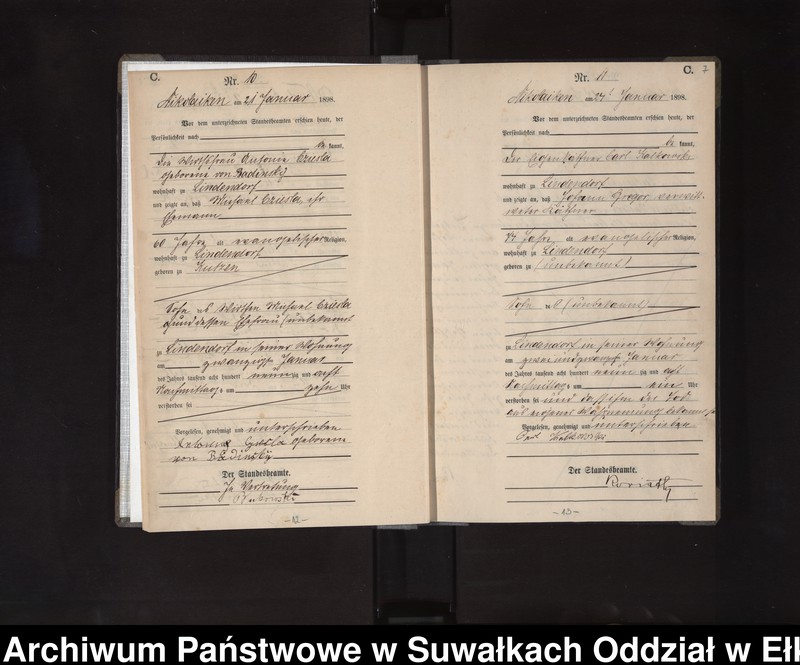 C.
Nr. 10
Nikolaiken am 21 Januar 1898.
Vor dem unterzeichneten Standesbeamten erschien heute, der
Persönlichkeit nach
be kannt,
die Wirthsfrau
geborene von
wohnhaft zu Lindendorf
und zeigte an, daß Michael ihr
Ehemann
60 Jahre alt evangelischer Religion,
wohnhaft zu Lindendorf
geboren zu
Sohn des Wirthen Michael
und dessen Ehefrau (unbekannt
zu Lindendorf in seiner Wohnung
am zwanzigsten Januar
des Jahres tausend acht hundert neunzig und acht
Nachmittags um zehn Uhr
verstorben sei
Vorgelesen, genehmigt und unterschrieben
geborene
von
Der Standesbeamte.
In Vertretung
-12-
C. 7
Nr. 11
Nikolaiken am 24t Januar 1898.
Vor dem unterzeichneten Standesbeamten erschien heute, der
Persönlichkeit nach
be kannt,
der Eigenkäthner Carl
wohnhaft zu Lindendorf
und zeigte an, daß Johann Gregor verwitt-
weter Käthner
Jahre alt evangelischer Religion,
wohnhaft zu Lindendorf
geboren zu (unbekannt)
Sohn des (unbekannt)
zu Lindendorf in seiner Wohnung
am zwei und zwanzigsten Januar
des Jahres tausend acht hundert neunzig und acht
Nachmittags um ein Uhr
verstorben sei und daß ihm der Tod
aus eigener Wahrnehmung bekannt sei
Vorgelesen, genehmigt und unterschrieben
Carl
Der Standesbeamte.
-13-
Archiwum Państwowe w Suwałkach Oddział w Ełk